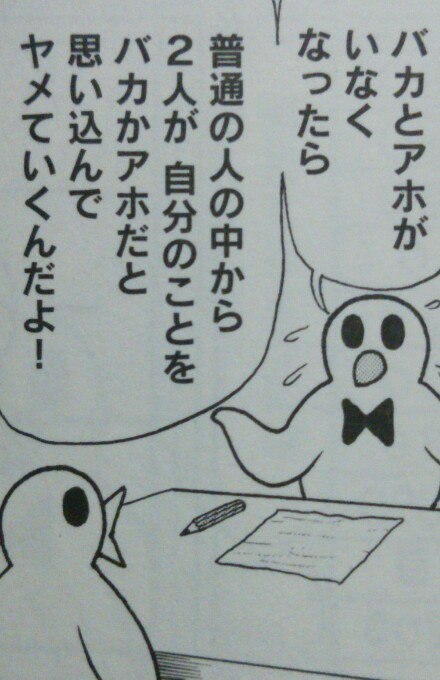 バカとアホが
いなく
なったら
普通の人の中から
2人が 自分のことを
バカかアホだと
思い込んで
ヤメていくんだよ!